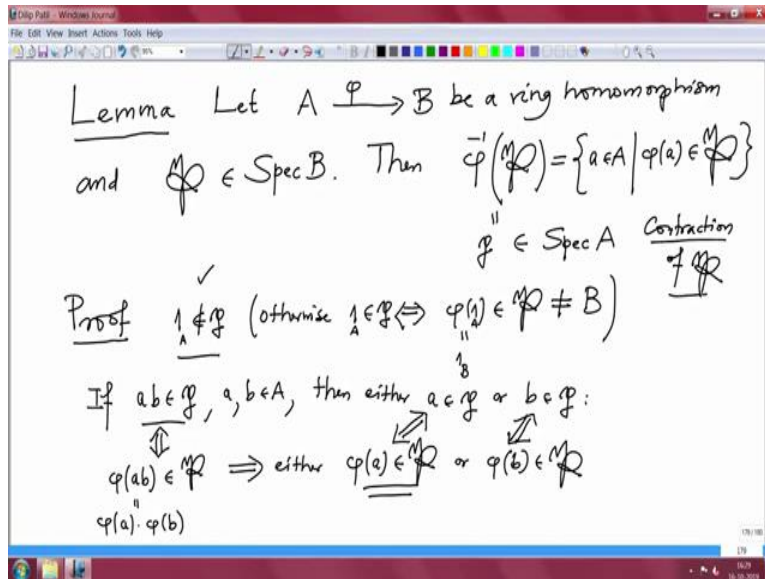 Dilip Patil - Windows Journal
File Edit View Insert Actions Tools Help
Lemma Let A →^φ B be a ring homomorphism
and 𝔓 ∈ Spec B. Then φ⁻¹(𝔓) = {a ∈ A | φ(a) ∈ 𝔓}
"
𝔭 ∈ Spec A Contraction
of 𝔓
✓
Proof 1_A ∉ 𝔭 (otherwise 1_A ∈ 𝔭 ⇔ φ(1_A) ∈ 𝔓 ≠ B)
"
1_B
If ab ∈ 𝔭, a, b ∈ A, then either a ∈ 𝔭 or b ∈ 𝔭:
⇕ ⇕ ⇕
φ(ab) ∈ 𝔓 ⟹ either φ(a) ∈ 𝔓 or φ(b) ∈ 𝔓
"
φ(a)·φ(b)
179/180
179
16:29